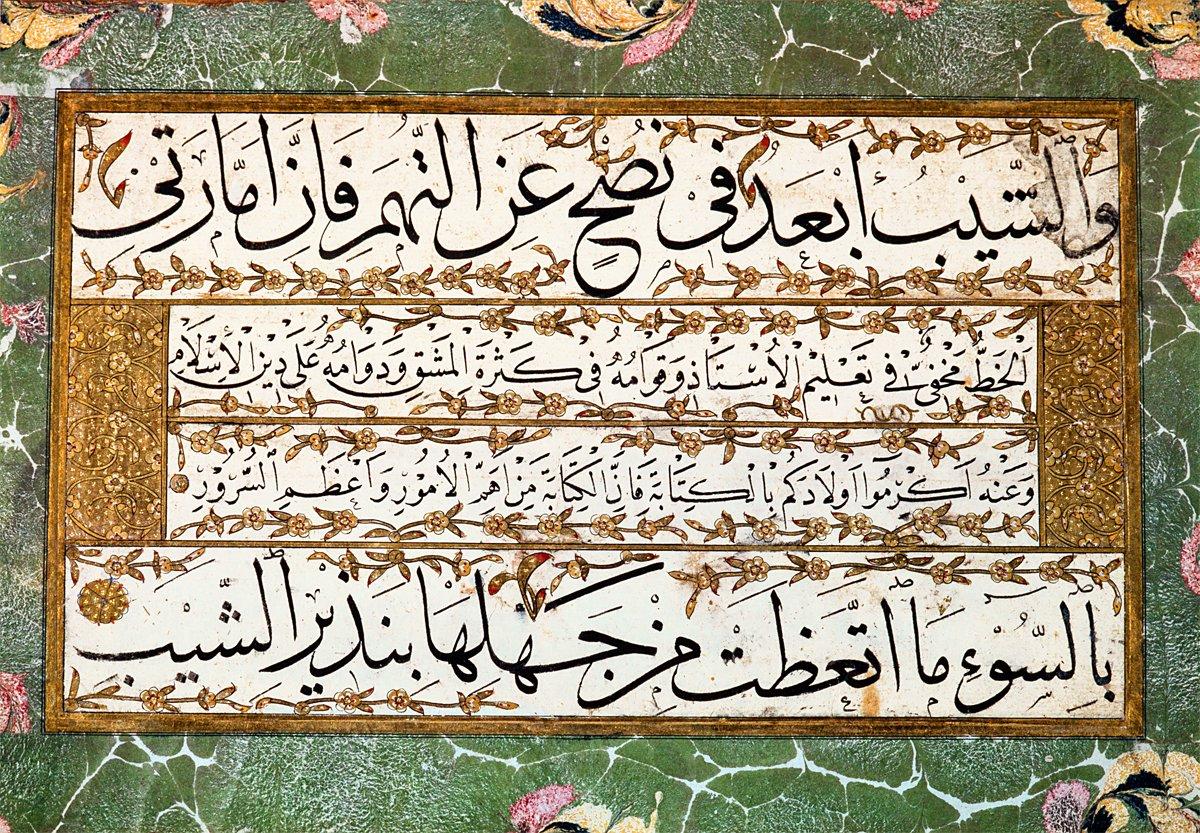 وَالشَّيْبُ اَبْعَدُ فِى نُصْحٍ عَنِ التُّهَمِ فَاِنَّ اَمَّارَتِى
اَلْخَطُّ مَخْفِىٌّ فِى تَعْلِيمِ الْاُسْتَاذِ وَقِوَامُهُ فِى كَثْرَةِ الْمَشْقِ وَدَوَامُهُ عَلَى دِينِ الْاِسْلَامِ
وَعَنْهُ اَكْرِمُوا اَوْلَادَكُمْ بِالْكِتَابَةِ فَاِنَّ الْكِتَابَةَ مِنْ اَهَمِّ الْاُمُورِ وَاَعْظَمِ السُّرُورِ
بِالسُّوءِ مَا اتَّعَظَتْ مِنْ جَهْلِهَا بِنَذِيرِ الشَّيْبِ